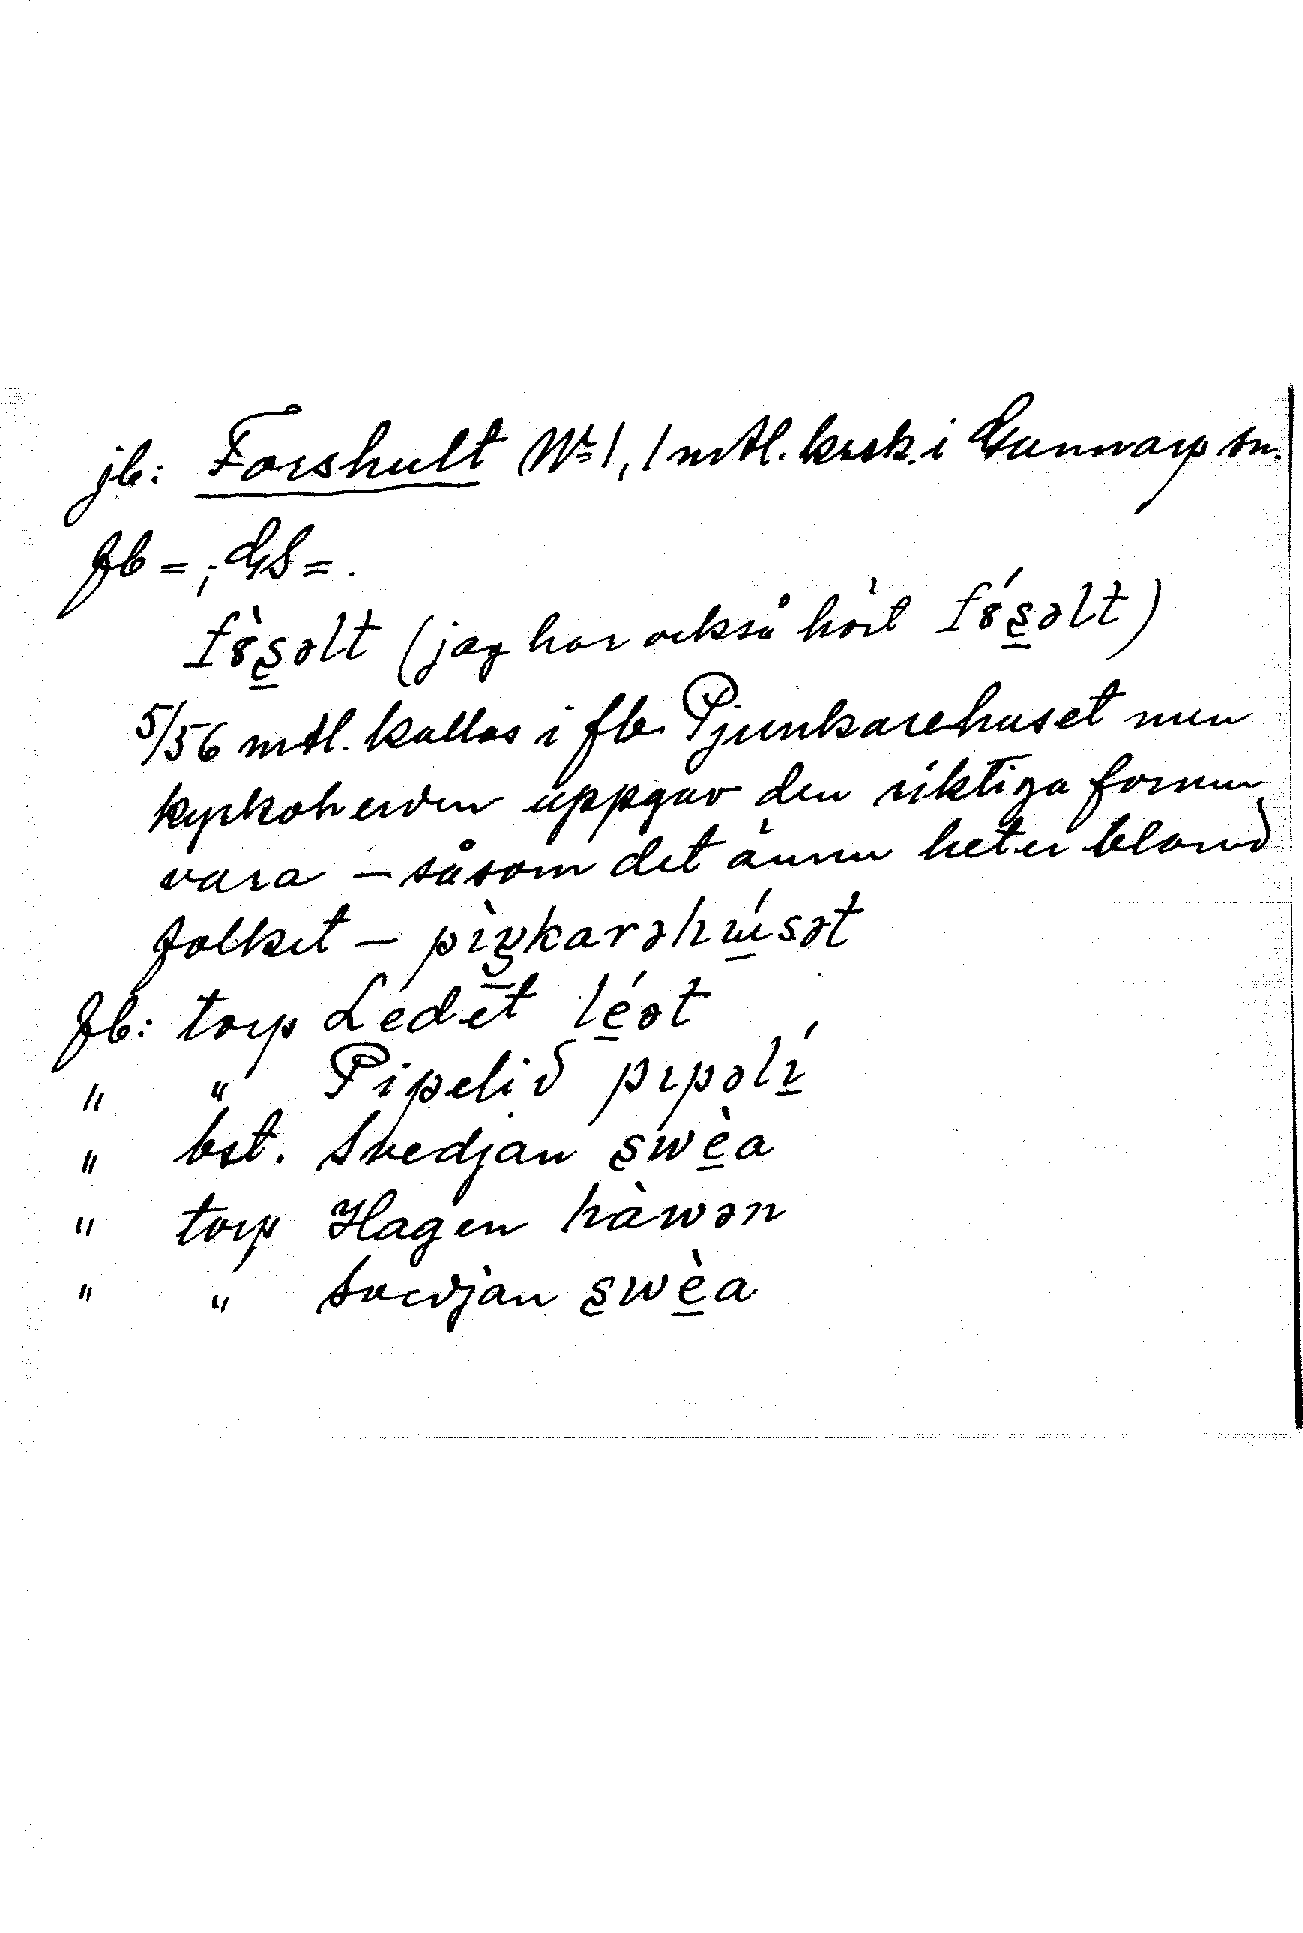 jb: Forshult No 1, 1 mtl. krsk. i Gunnarp sn.
fb = ; GS = .
fɤ̀s̱əlt (jag har också hört fɤ́s̱əlt)
5/56 mtl. kallas i fb. Pjunkarehuset men
kyrkoherden uppgav den riktiga formen
vara – såsom det ännu heter bland
folket – pìŋkarəhɯ́sət
fb: torp Ledet lé̱ət
" " Pipelid pɪpəlɪ́
" bst. Svedjan swè̱a
" torp Hagen hàwən
" " Svedjan swè̱a